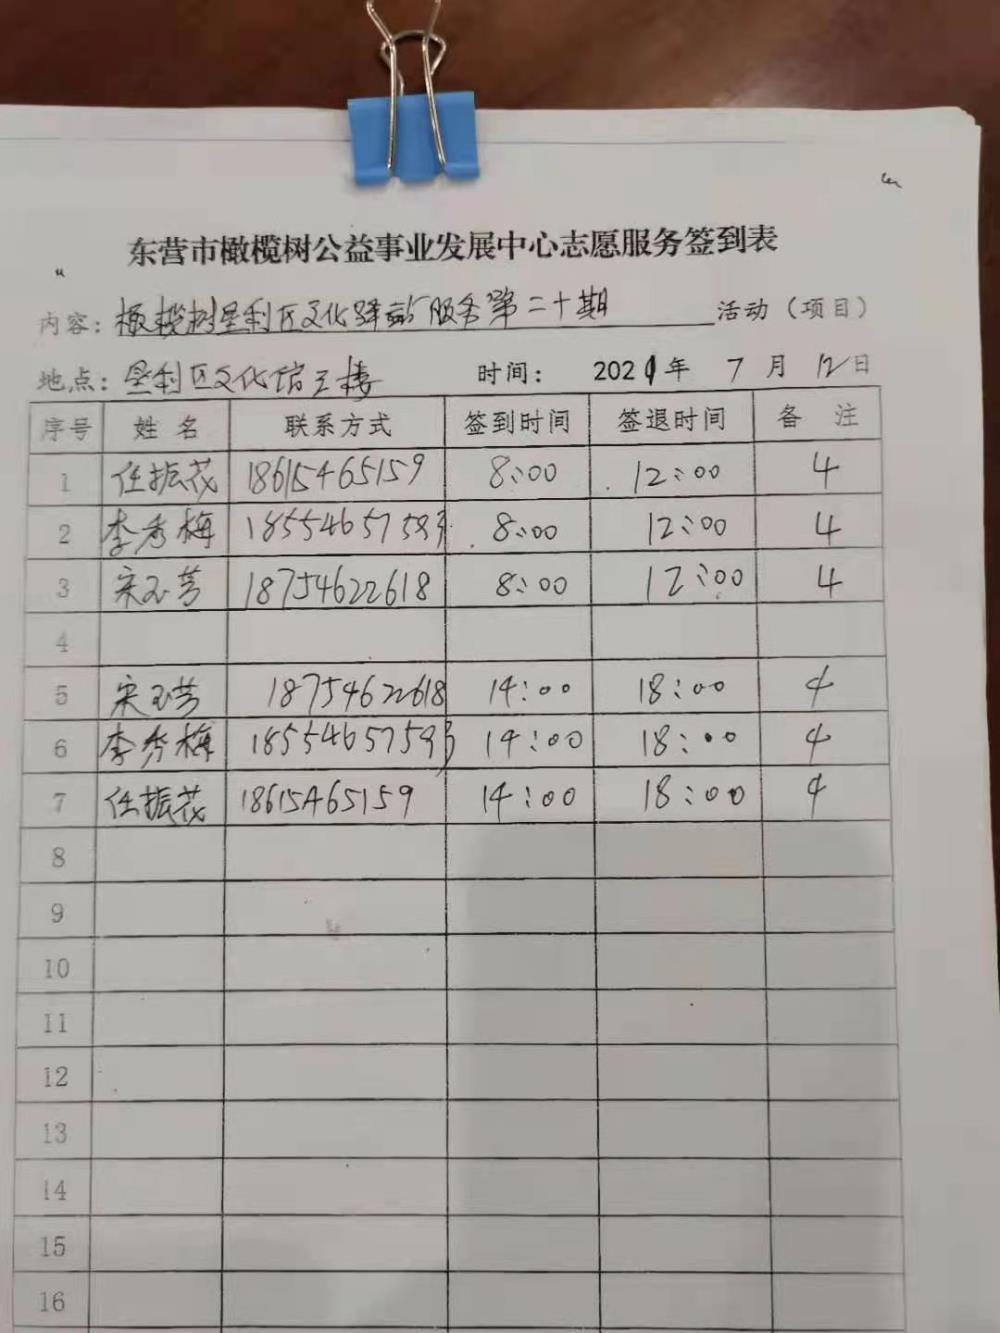 东营市橄榄树公益事业发展中心志愿服务签到表
内容：橄榄树垦利区文化驿站服务第二十期 活动（项目）
地点：垦利区文化馆三楼 时间： 2021年 7 月 12日
序号 姓 名 联系方式 签到时间 签退时间 备 注
1 任振花 18615465159 8:00 12:00 4
2 李秀梅 18554657593 8:00 12:00 4
3 宋玉芳 18754622618 8:00 12:00 4
4
5 宋玉芳 18754622618 14:00 18:00 4
6 李秀梅 18554657593 14:00 18:00 4
7 任振花 18615465159 14:00 18:00 4
8
9
10
11
12
13
14
15
16